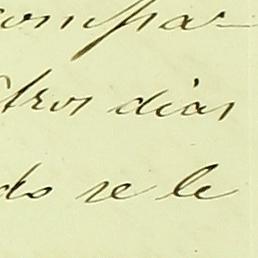 compa-
tros dias
do se le